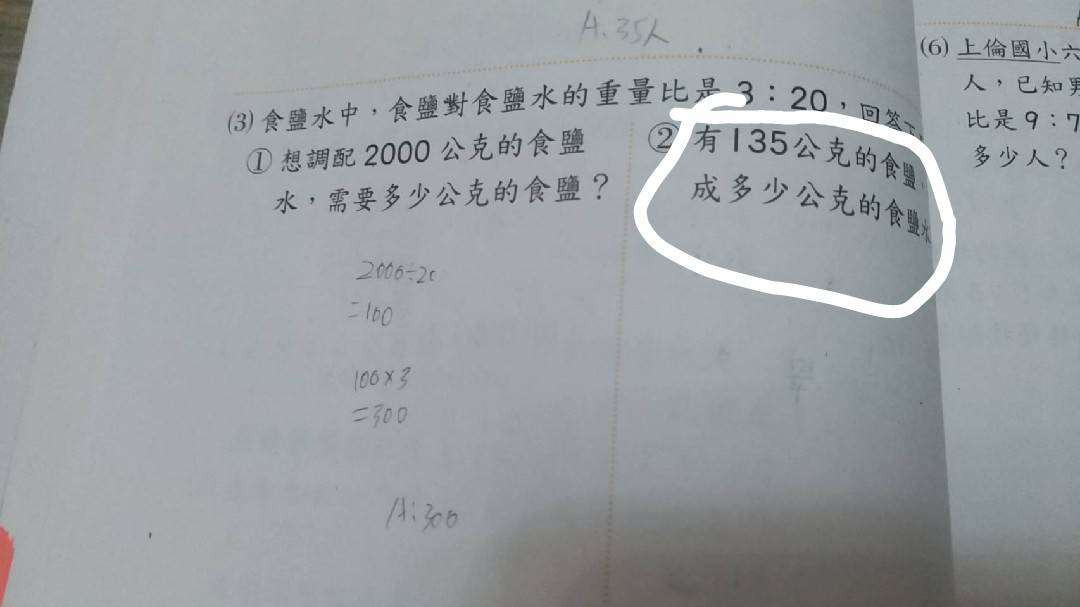 A:35人
(3) 食鹽水中，食鹽對食鹽水的重量比是 3：20，回答
① 想調配 2000 公克的食鹽
水，需要多少公克的食鹽？
2000÷20
=100
100×3
=300
A:300
② 有135公克的食鹽，
成多少公克的食鹽水
(6) 上倫國小六
人，已知男
比是 9：7
多少人？